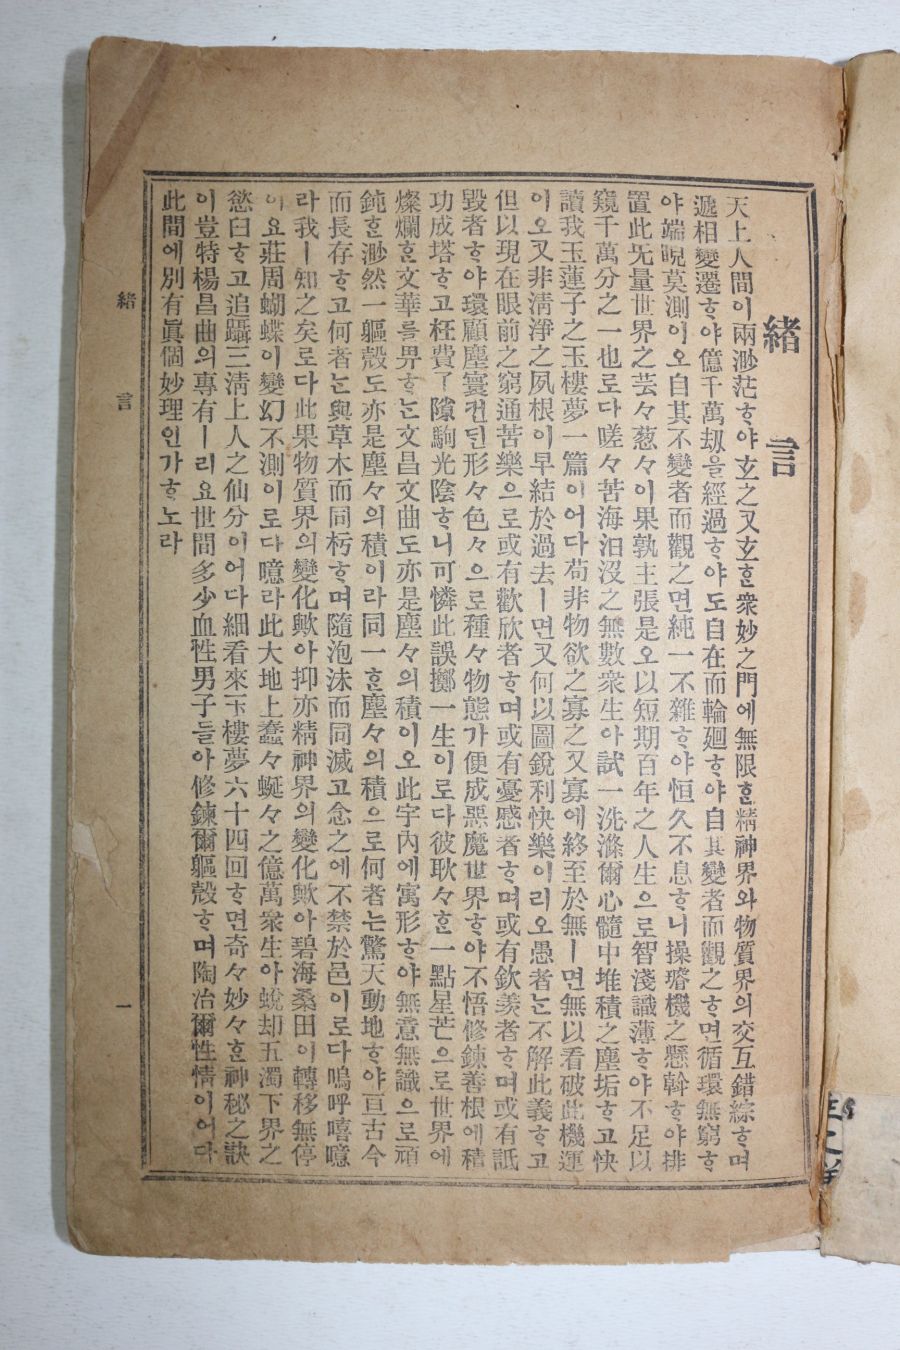 緖言
天上人間이兩渺茫ᄒᆞ야玄之又玄ᄒᆞᆫ衆妙之門에無限ᄒᆞᆫ精神界와物質界의交互錯綜ᄒᆞ며
遞相變遷ᄒᆞ야億千萬刼을經過ᄒᆞ야도自在而輪廻ᄒᆞ야自其變者而觀之ᄒᆞ면循環無窮ᄒᆞ
야端睨莫測이오自其不變者而觀之면純一不雜ᄒᆞ야恒久不息ᄒᆞ니操璿機之懸斡ᄒᆞ야排
置此旡量世界之芸々葱々이果孰主張是오以短期百年之人生으로智淺識薄ᄒᆞ야不足以
窺千萬分之一也로다嗟々苦海汨沒之無數衆生아試一洗滌爾心髓中堆積之塵垢ᄒᆞ고快
讀我玉蓮子之玉樓夢一篇이어다苟非物欲之寡之又寡에終至於無ㅣ면無以看破此機運
이오又非淸淨之夙根이早結於過去ㅣ면又何以圖銳利快樂이리오愚者ᄂᆞᆫ不解此義ᄒᆞ고
但以現在眼前之窮通苦樂으로或有歡欣者ᄒᆞ며或有憂慼者ᄒᆞ며或有欽羨者ᄒᆞ며或有詆
毀者ᄒᆞ야環顧塵寰컨ᄃᆡᆫ形々色々으로種々物態가便成惡魔世界ᄒᆞ야不悟修鍊善根에積
功成塔ᄒᆞ고枉費了隙駒光陰ᄒᆞ니可憐此誤擲一生이로다彼耿々ᄒᆞᆫ一點星芒으로世界에
燦爛ᄒᆞᆫ文華를畀ᄒᆞᄂᆞᆫ文昌文曲도亦是塵々의積이오此宇內에寓形ᄒᆞ야無意無識으로頑
鈍ᄒᆞᆫ渺然一軀殼도亦是塵々의積이라同一ᄒᆞᆫ塵々의積으로何者ᄂᆞᆫ驚天動地ᄒᆞ야亘古今
而長存ᄒᆞ고何者ᄂᆞᆫ與草木而同朽ᄒᆞ며隨泡沫而同滅고念之에不禁於邑이로다嗚呼嘻噫
라我ㅣ知之矣로다此果物質界의變化歟아抑亦精神界의變化歟아碧海桑田이轉移無停
이요莊周蝴蝶이變幻不測이로다噫라此大地上蠢々蜒々之億萬衆生아蛻却五濁下界之
慾臼ᄒᆞ고追躡三淸上人之仙分이어다細看來玉樓夢六十四回ᄒᆞ면奇々妙々ᄒᆞᆫ神秘之訣
이豈特楊昌曲의專有ㅣ리요世間多少血性男子들아修鍊爾軀殼ᄒᆞ며陶冶爾性情이어다
此間에別有眞個妙理인가ᄒᆞ노라
緒言
一